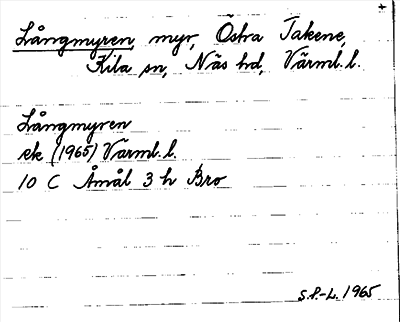 +
Långmyren, myr, Östra Takene,
Kila sn, Näs hd, Värml. l.
Långmyren
ek (1965) Värml. l.
10 C Åmål 3 h Bro
S.P.-L. 1965